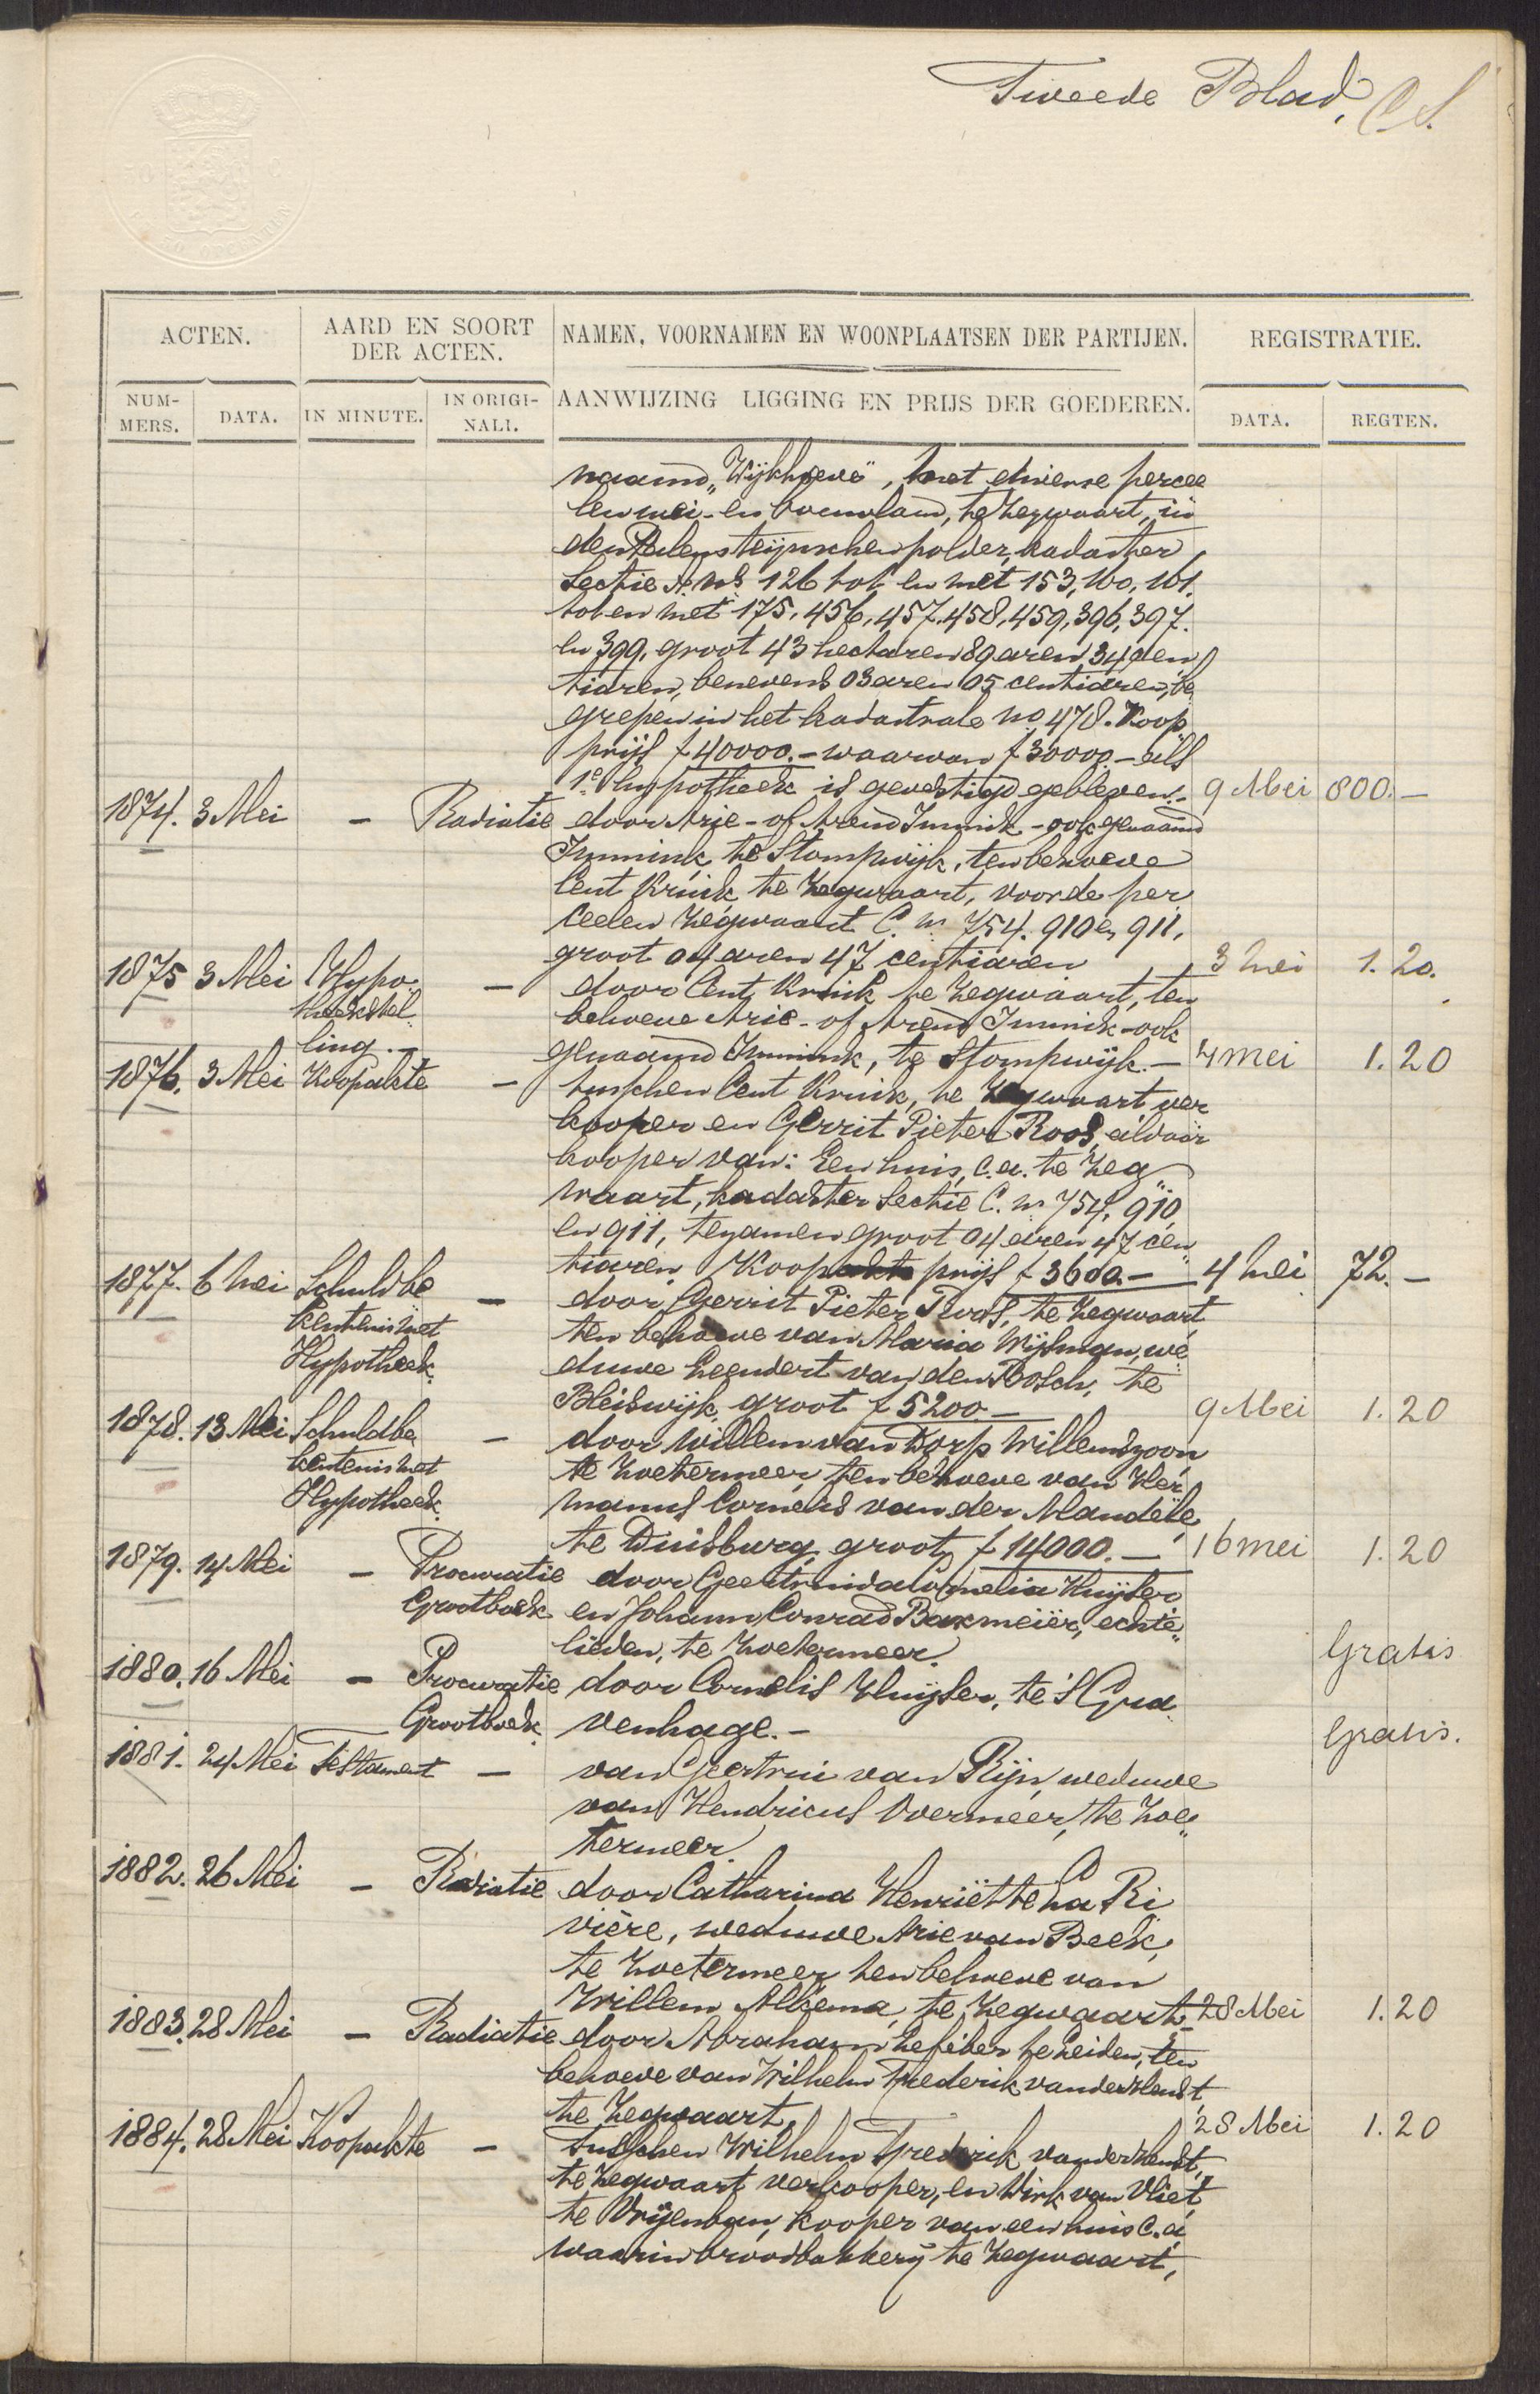 Tweede Blad. CS.
ACTEN.
AARD EN SOORT
DER ACTEN.
NAMEN, VOORNAMEN EN WOONPLAATSEN DER PARTIJEN.
REGISTRATIE.
NUM-
MERS.
DATA.
IN MINUTE.
IN ORIGI-
NALI.
AANWIJZING LIGGING EN PRIJS DER GOEDEREN.
DATA.
REGTEN.
naamd "Wijkhoeve", met diverse percee
len wei- en bouwland, te Zegwaart, in
den Palensteijnschen polder, kadaster
Sectie A. nos 126 tot en met 153, 160, 161.
tot en met 175, 456, 457, 458, 459, 396, 397.
en 399, groot 43 hectaren 89 aren 34 cen
tiaren, benevens 03 aren 05 centiaren, be
grepen in het kadastrale no 478. Koop
prijs f 40000.- waarvan f 30000.- als
1e hypotheek is gevestigd gebleven.- 9 Mei 800.-
1874. 3 Mei - Radiatie door Arie - of Arend Immink - ook genaamd
Immink, te Stompwijk, ten behoeve
Cent Kruik te Zegwaart, voor de per
ceelen Zegwaart C. no 754. 910 en 911,
groot 04 aren 47 centiaren 3 Mei 1.20.
1875 3 Mei Hypo- - door Cent Kruik te Zegwaart, ten
theekstel behoeve Arie - of Arend Immink - ook
ling.- genaamd Immink, te Stompwijk.- 4 mei 1.20
1876. 3 Mei Koopakte - tusschen Cent Kruik, te Zegwaart ver
kooper en Gerrit Pieter Roos, aldaar
kooper van: Een huis, c.a. te Zeg
waart, kadaster Sectie C. no 754, 910
en 911, tezamen groot 04 aren 47 cen
tiaren. Koopakte prijs f 3600.- 4 Mei 72.-
1877. 6 Mei Schuldbe - door Gerrit Pieter Roos, te Zegwaart
kentenis met ten behoeve van Maria Wijsman, we
Hypotheek. duwe Leendert van den Bosch, te
Bleiswijk, groot f 5200.- 9 Mei 1.20
1878. 13 Mei Schuldbe - door Willem van Dorp Willemszoon
kentenis met te Zoetermeer, ten behoeve van Her
Hypotheek. manus Cornelis van der Mandele
te Duisburg, groot f 14000.- 16 mei 1.20
1879. 14 Mei - Procuratie door Geertruida Cornelia Huijser
Grootboek en Johann Conrad Baxmeiër, echte
lieden, te Zoetermeer. Gratis
1880. 16 Mei - Procuratie door Cornelis Huijser, te 's Gra
Grootboek. venhage.- Gratis.
1881. 24 Mei Testament - van Geertrui van Rijn, weduwe
van Hendricus Overmeer, te Zoe
termeer.
1882. 26 Mei - Radiatie door Catharina Henriëtte La Ri
vière, weduwe Arie van Beek,
te Zoetermeer ten behoeve van
Willem Alkema, te Zegwaart.- 28 Mei 1.20
1883. 28 Mei - Radiatie door Abraham Lefeber te Leiden, ten
behoeve van Wilhelm Frederik van der
te Zegwaart. 28 Mei 1.20
1884. 28 Mei Koopakte - tusschen Wilhelm Frederik van der
te Zegwaart verkooper, en Dirk van Vliet,
te Vrijenban, kooper van een huis c.a.
waarin broodbakkerij te Zegwaart,